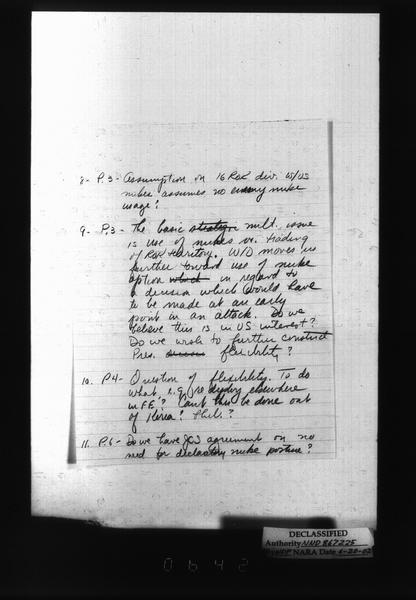 8- P.3- Assumption on 16 ROK div. w/US
nukes assumes no enemy nuke
usage?
9- P.3- The basic strategic milt. issue
is use of nukes vs. trading
of ROK territory. W/D moves us
further toward use of nuke
option which in regard to
a decision which would have
to be made at an early
point in an attack. Do we
believe this is in US interest?
Do we wish to further constrict
Pres. flexibility?
10. P4- Question of flexibility. To do
what, e.g. redeploy elsewhere
in FE? Can't this be done out
of Korea? Phil.?
11. P.6- Do we have JCS agreement on no
need for declaratory nuke posture?
DECLASSIFIED
Authority NND 867225
NARA Date 6-20-02
0642